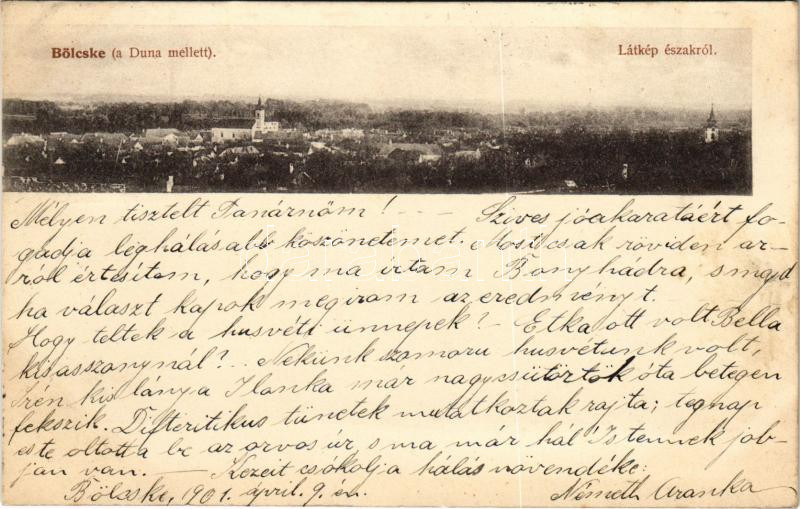 Bölcske (a Duna mellett).
Látkép északról.
Mélyen tisztelt Tanárnőm! - - - Szíves jóakaratáért fo-
gadja leghálásabb köszönetemet. Most csak röviden ar-
ról értesítem, hogy ma irtam Bonyhádra, s majd
ha választ kapok megirom az eredményt.
Hogy teltek a husvéti ünnepek? - Etka ott volt Bella
kisasszonynál? .. Nekünk szomorú husvétunk volt,
Irén kis lánya Ilonka már nagycsütörtök óta betegen
fekszik. Difteritikus tünetek mutatkoztak rajta; tegnap
este oltotta be az orvos úr s ma már hál' Istennek job-
ban van. - Kezeit csókolja hálás növendéke:
Bölcske, 1901. ápril. 9.én.
Németh Aranka